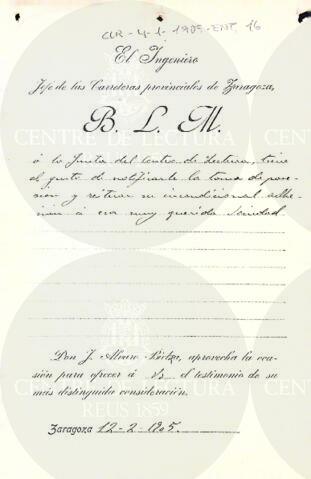 CLR-4-1-1905-ENT, 16
El Ingeniero
Jefe de las Carreteras provinciales de Zaragoza,
B. L. M.
á la Junta del Centro de Lectura, tiene
el gusto de notificarle la toma de pose-
sion y reiterar su incondicional adhe-
sion á esa muy querida Sociedad
Don J. Alvaro Bielza, aprovecha la oca-
sión para ofrecer á Vs el testimonio de su
más distinguida consideración.
Zaragoza 12-2-1905.
CENTRE DE LECTURA
REUS 1859